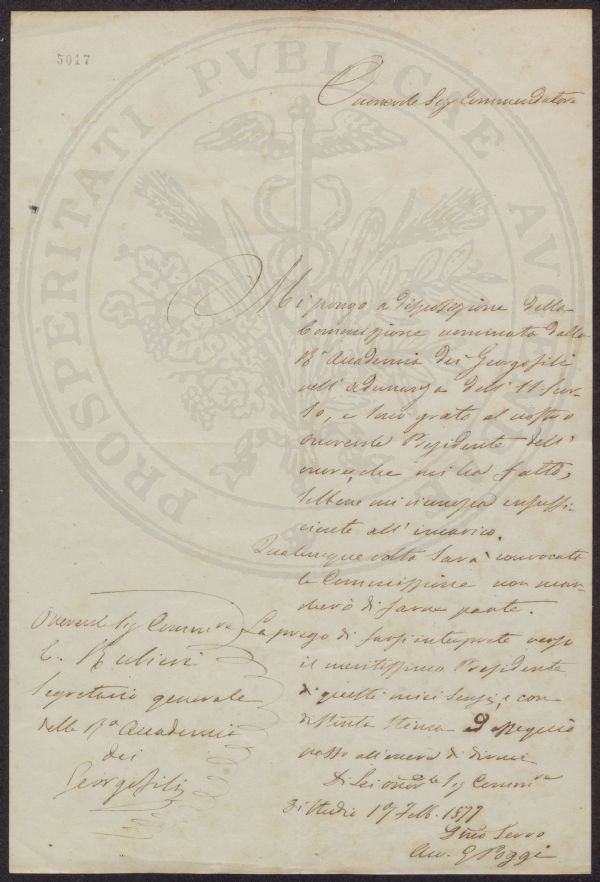 5017
PROSPERITATI PVBLICAE AVG
Onorevole Sig Commendatore
Mi pongo a disposizione della
Commissione nominata dalla
R.ª Academia dei Georgofili
nell'adunanza dell'11 Scor-
so, e sono grato al nostro
onorevole Presidente dell'
onore, che mi ha fatto,
sebbene mi riconosca insuffi-
ciente all'incarico.
Qualunque volta sarà convocata
la Commissione non man-
cherò di farne parte.
La prego di farsi interprete verso
il meritissimo Presidente
di questi miei sensi, e con
distinta stima ed ossequio
passo all'onore di dirmi
Di Lei Sig Comm.re
Di Studio 17 Febb. 1877
Servo
Avv. G Poggi
Onorevole Sig Comm.re
E. Rubieri
Segretario generale
della R.ª Accademia
dei
Georgofili